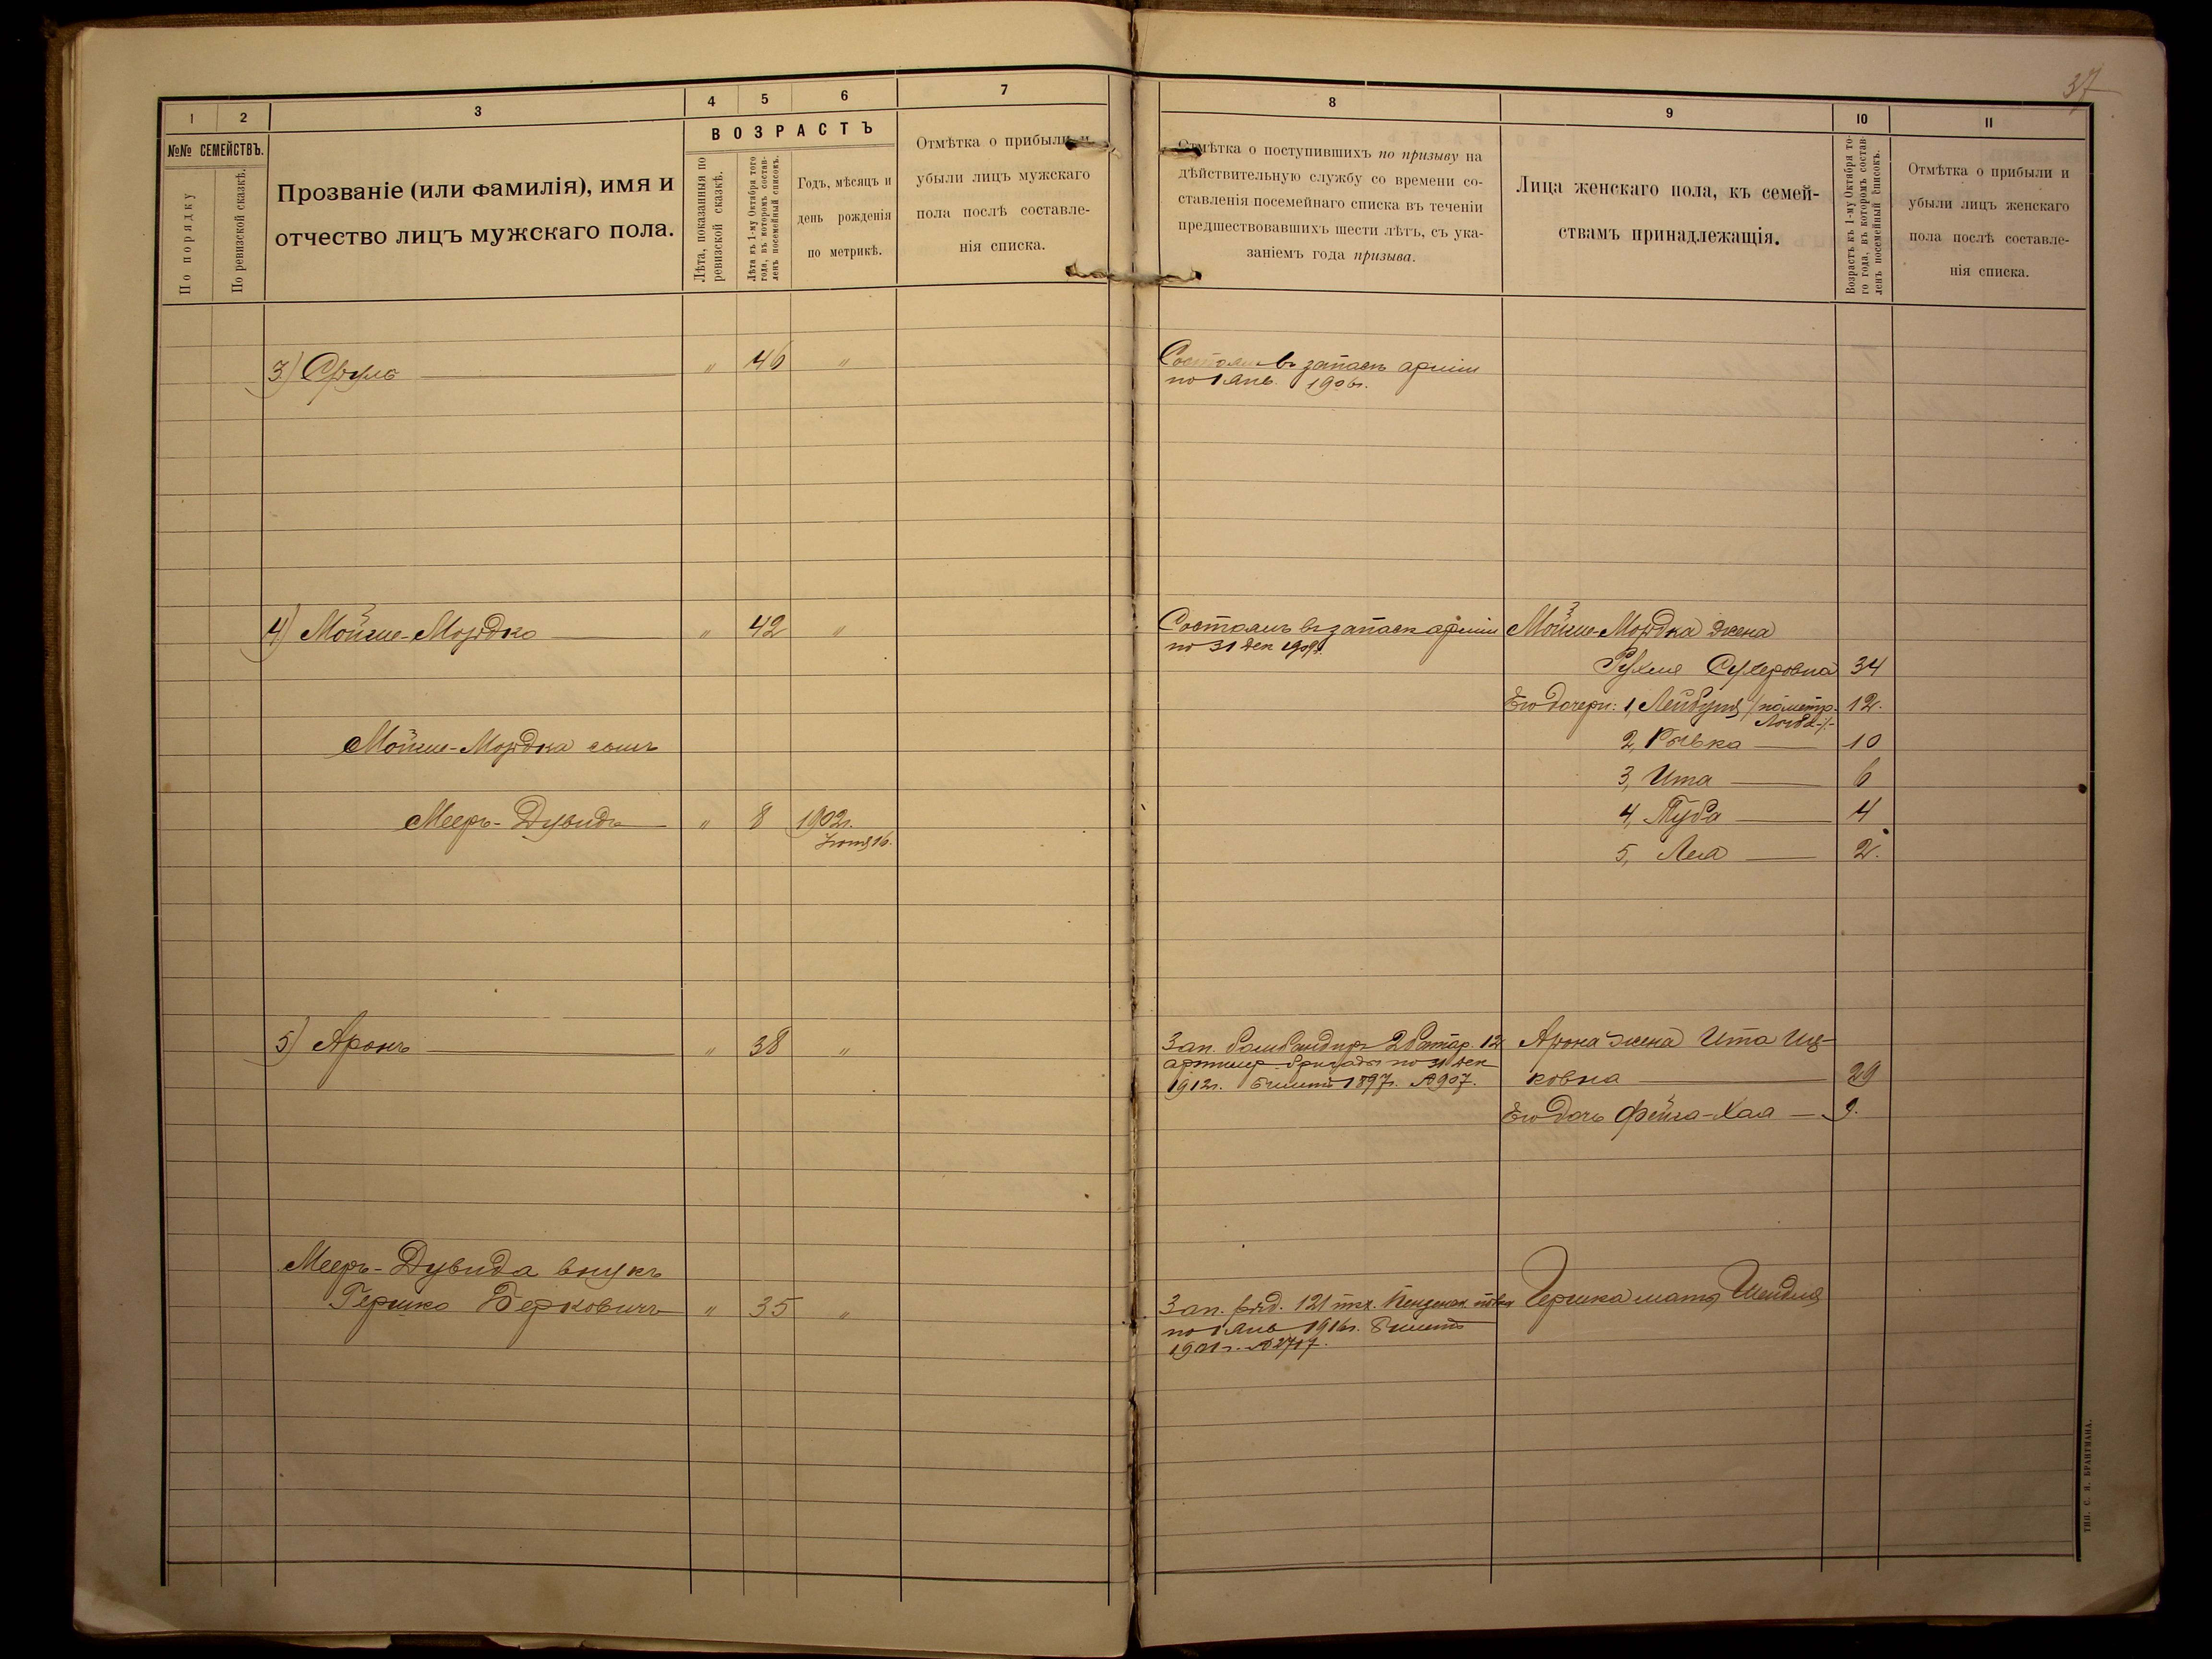 37
1 2 3 4 5 6 7
№№ СЕМЕЙСТВЪ.
По порядку
По ревизской сказкѣ.
Прозваніе (или фамилія), имя и
отчество лицъ мужскаго пола.
ВОЗРАСТЪ
Лѣта, показанныя по
ревизской сказкѣ.
Лѣта къ 1-му Октября того
года, въ которомъ состав-
ленъ посемейный списокъ.
Годъ, мѣсяцъ и
день рожденія
по метрикѣ.
Отмѣтка о прибыли и
убыли лицъ мужскаго
пола послѣ составле-
нія списка.
8 9 10 11
Отмѣтка о поступившихъ по призыву на
дѣйствительную службу со времени со-
ставленія посемейнаго списка въ теченіи
предшествовавшихъ шести лѣтъ, съ ука-
заніемъ года призыва.
Лица женскаго пола, къ семей-
ствамъ принадлежащія.
Возрастъ къ 1-му Октября то-
го года, въ которомъ состав-
ленъ посемейный списокъ.
Отмѣтка о прибыли и
убыли лицъ женскаго
пола послѣ составле-
нія списка.
3) Сруль — " 46 "
Состоялъ въ запасѣ арміи
по 1 Янв. 1906г.
4) Мойше-Мордко — " 42 "
Состоялъ въ запасѣ арміи
по 31 Дек 1909г.
Мойше-Мордка жена
Рухля Сухеровна 34
Его дочери: 1, Лейбуня /по метр. 12.
Люба-/-
2, Рывка — 10
3, Ита — 6
4, Туба — 4
5, Леа — 2.
Мойше-Мордка сынъ
Мееръ-Дувидъ — " 8 1902г.
Іюня 16.
5) Аронъ — " 38 "
Зап. бомбандиръ 2 батар. 12
артилер. бригады по 31 Дек
1912г. билетъ 1897г. №907.
Арона жена Ита Иц-
ковна — 29
Его дочь Фейга-Хая — 9.
Мееръ-Дувида внукъ
Гершко Берковичъ — " 35 "
Зап. ряд. 121 пѣх. Пензенск. полка
по 1 Янв 1916г. билетъ
1901г. №2717.
Гершка мать Шендля
ТИП. С. Я. БРАНТМАНА.